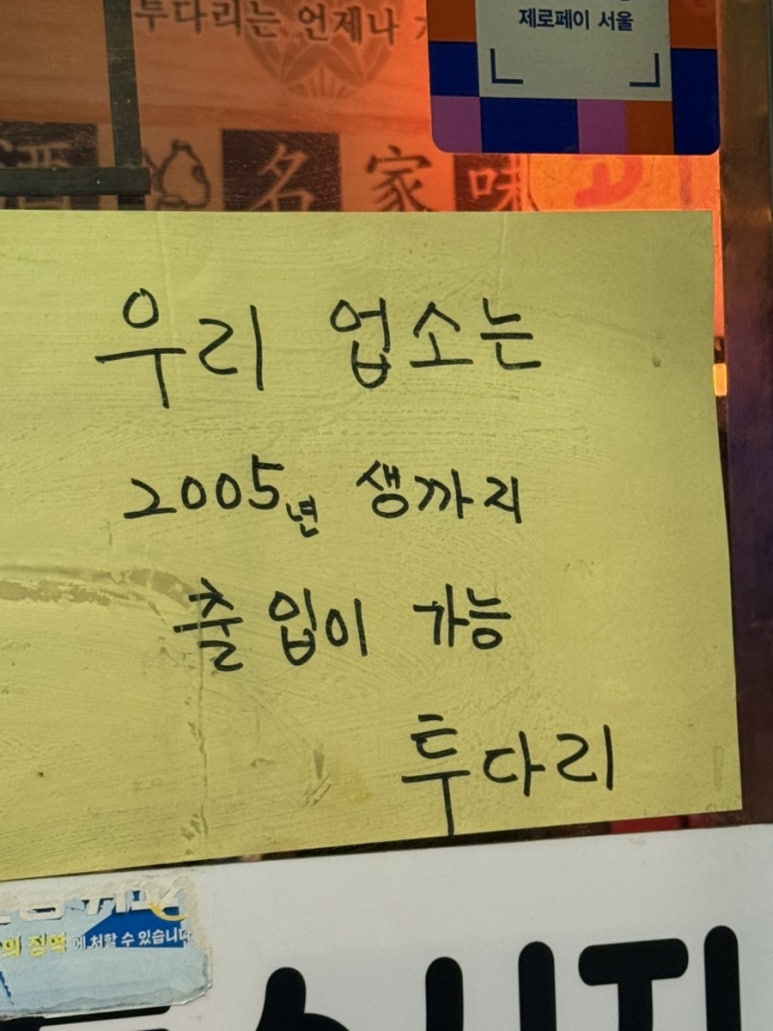 투다리는 언제나
제로페이 서울
酒 名 家 味
우리 업소는
2005년 생까지
출입이 가능
투다리
의 징역에 처할 수 있습니다